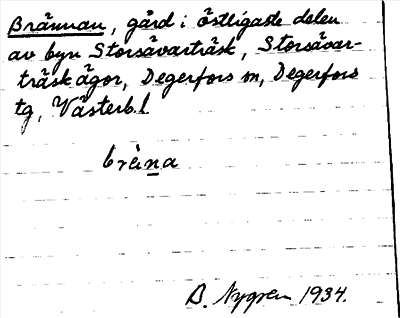 Brännan, gård i östligaste delen
av byn Storsävarträsk, Storsävar-
träsk ägor, Degerfors sn, Degerfors
tg, Västerb. l.
brèina
B. Nygren 1934.